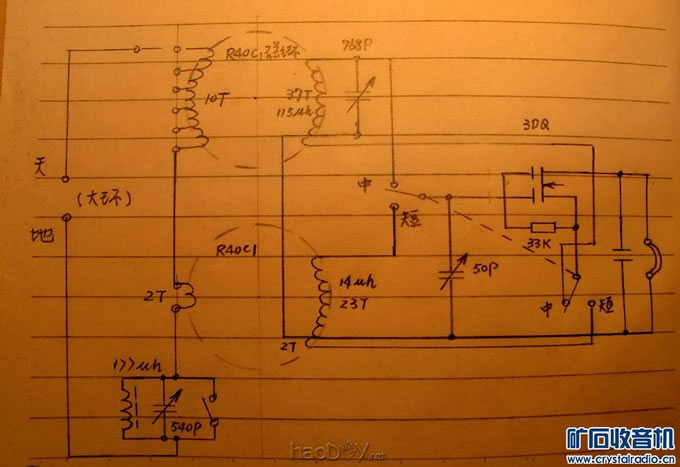 R40C1磁环
768P
10T
37T
115μh
3DQ
天
(大环)
地
中
短
33K
R40C1
14μh
23T
50P
2T
中
短
2T
177μh
540P
haoDIY.net
矿石收音机
www.crystalradio.cn